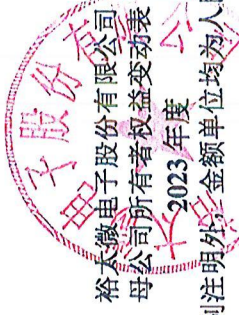 裕太微电子股份有限公司
母公司所有者权益变动表
2023 年度
别注明外,金额单位均为人民